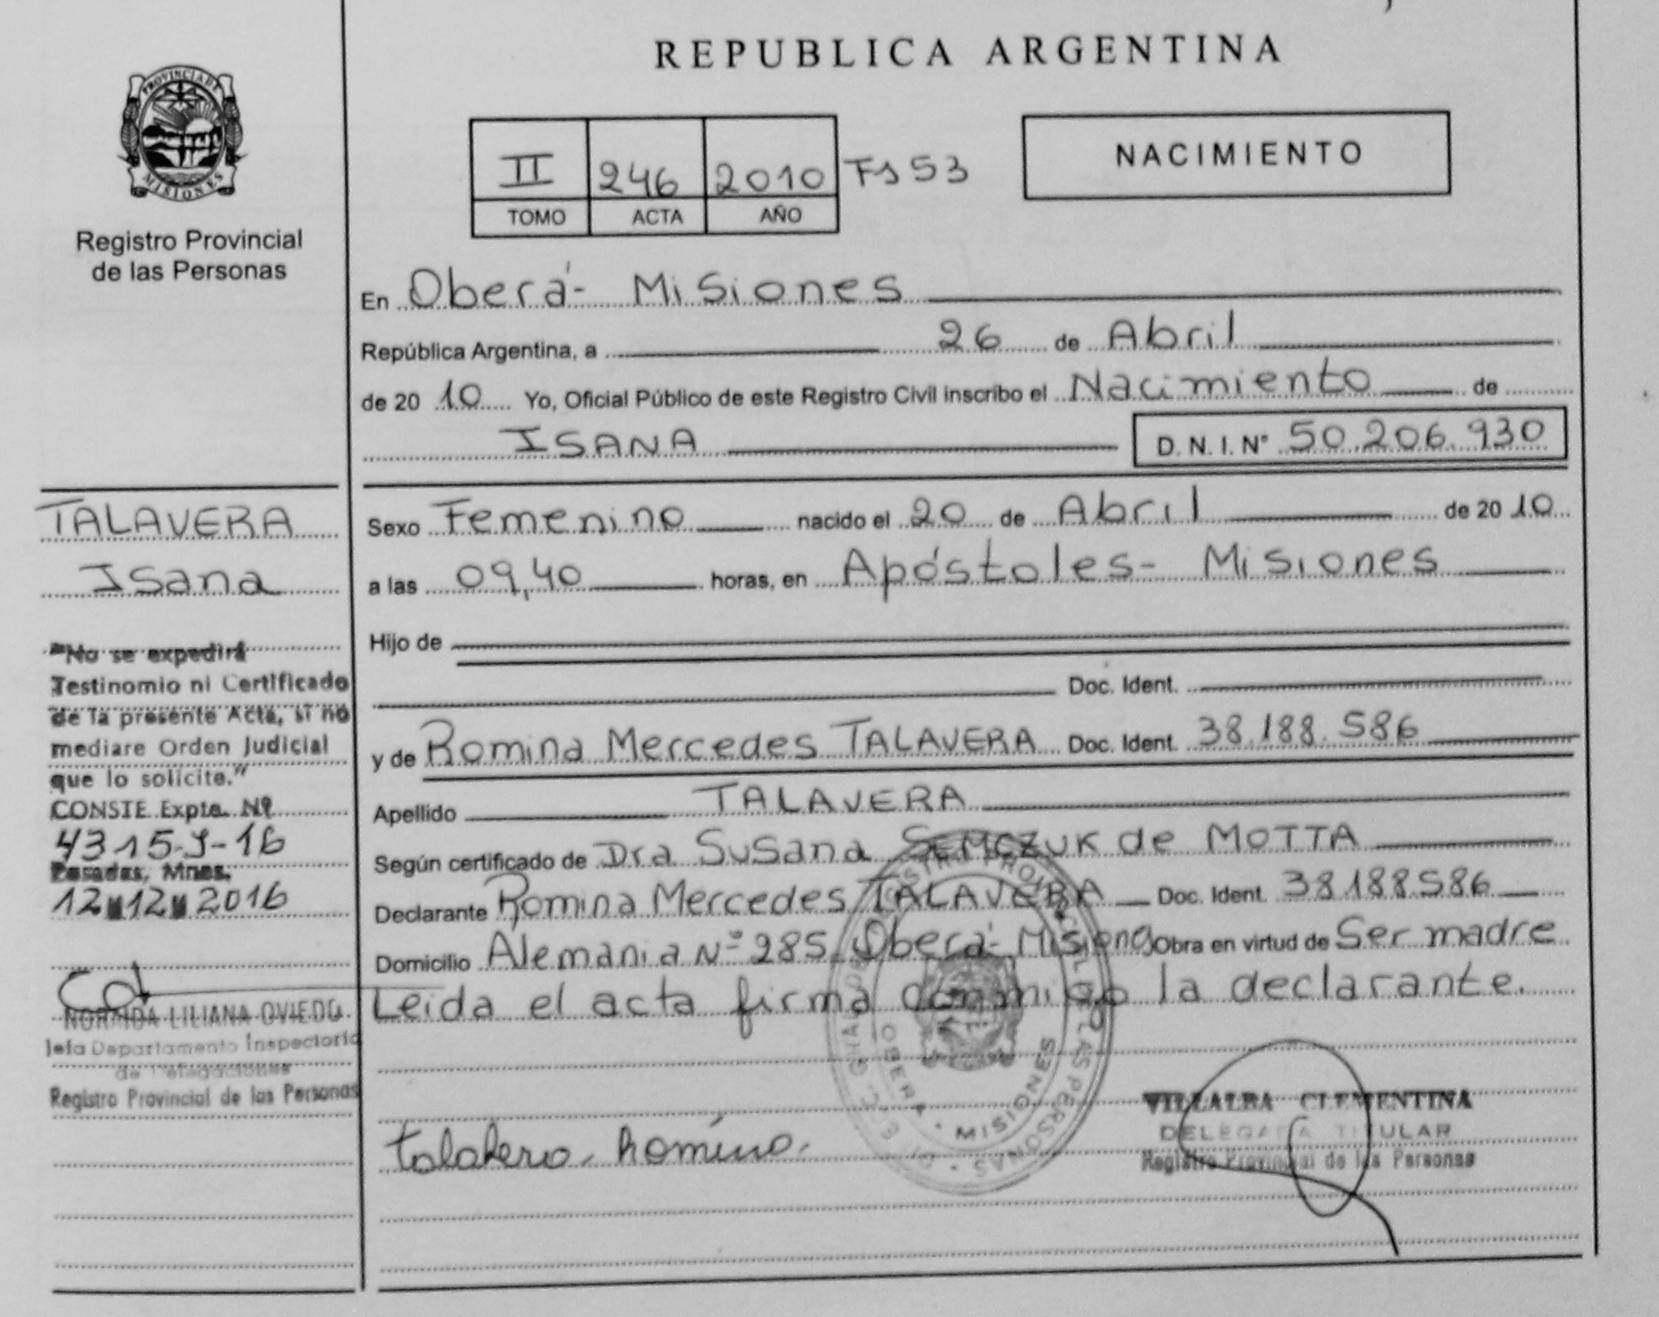 REPUBLICA ARGENTINA
PROVINCIA DE MISIONES
Registro Provincial
de las Personas
II 246 2010 Fs 53
TOMO ACTA AÑO
NACIMIENTO
En Oberá - Misiones
República Argentina, a 26 de Abril
de 20 10 Yo, Oficial Público de este Registro Civil inscribo el Nacimiento de
ISANA D. N. I. N° 50.206.930
Sexo Femenino nacido el 20 de Abril de 20 10
a las 09,40 horas, en Apóstoles - Misiones
Hijo de
Doc. Ident.
y de Romina Mercedes TALAVERA Doc. Ident. 38.188.586
Apellido TALAVERA
Según certificado de Dra Susana SEMCZUK de MOTTA
Declarante Romina Mercedes TALAVERA Doc. Ident. 38188586
Domicilio Alemania Nº 285. Oberá - Misiones Obra en virtud de Ser madre
Leida el acta firma conmigo la declarante.
TALAVERA
Isana
"No se expedirá
Testinomio ni Certificado
de la presente Acta, si no
mediare Orden Judicial
que lo solicite."
CONSTE Expte. Nº
4315-J-16
Posadas, Mnes.
12 12 2016
NORMDA LILIANA OVIEDO
Jefa Departamento Inspectoria
de Delegaciones
Registro Provincial de las Personas
Talavera Romina
OBERA - MISIONES
VILLALBA CLEMENTINA
DELEGADA TITULAR
Registro Provincial de las Personas